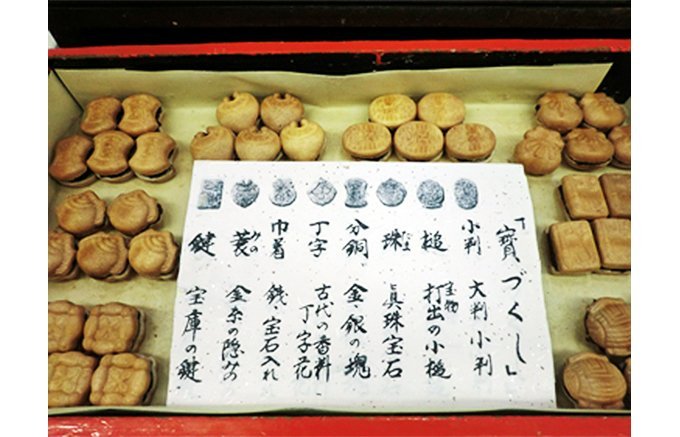 「寳づくし」
小判 大判小判
槌 宝物 打出の小槌
珠 たま 真珠宝石
分銅 金、銀の塊
丁字 古代の香料 丁字花
巾着 銭、宝石入れ
蓑 みの 金糸の隠みの
鍵 宝庫の鍵